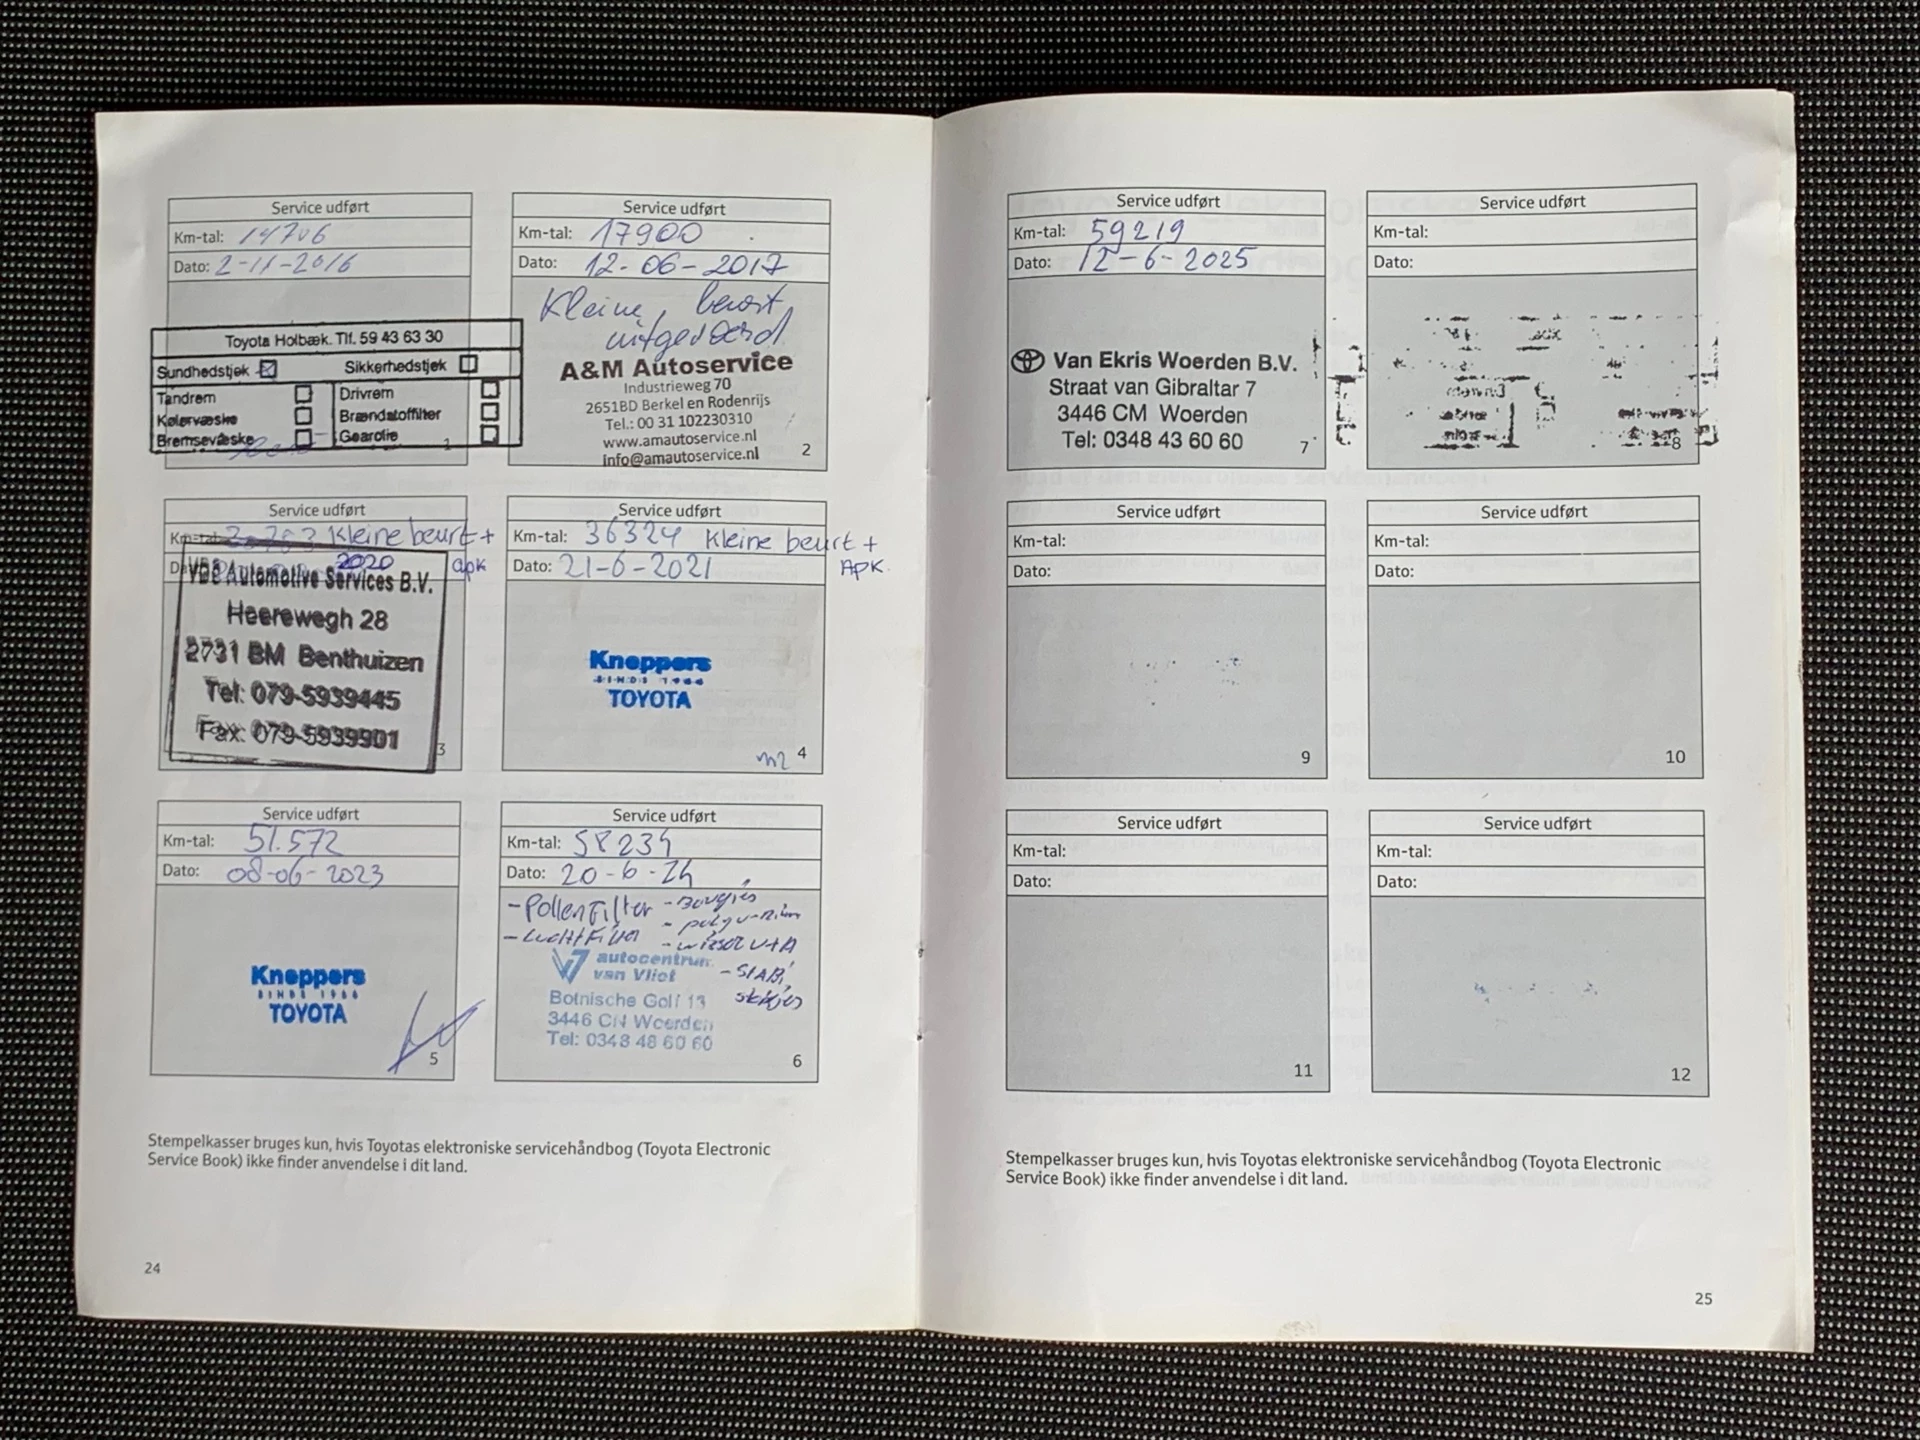 Service udført
Km-tal: 14706
Dato: 2-11-2016
Toyota Holbæk. Tlf. 59 43 63 30
Sundhedstjek Sikkerhedstjek
Tændrem Drivrem
Kølervæske Brændstoffilter
Bremsevæske Gearolie
1
Service udført
Km-tal: 17900
Dato: 12-06-2017
Kleine beurt
uitgevoerd
A&M Autoservice
Industrieweg 70
2651BD Berkel en Rodenrijs
Tel.: 00 31 102230310
www.amautoservice.nl
info@amautoservice.nl
2
Service udført
Km-tal: Kleine beurt +
2020 apk
VDB Automotive Services B.V.
Heerewegh 28
2731 BM Benthuizen
Tel: 079-5939445
Fax: 079-5939901
3
Service udført
Km-tal: 36324 Kleine beurt +
Dato: 21-6-2021 APK.
Kneppers
SINDS 1966
TOYOTA
4
Service udført
Km-tal: 51.572
Dato: 08-06-2023
Kneppers
SINDS 1966
TOYOTA
5
Service udført
Km-tal: 58234
Dato: 20-6-24
- Pollenfilter - Bougies
- Luchtfilter - poly v-riem
- wisser v+A
- STABI
stekjes
autocentrum
van Vliet
Botnische Golf 13
3446 CN Woerden
Tel: 0348 48 60 60
6
Stempelkasser bruges kun, hvis Toyotas elektroniske servicehåndbog (Toyota Electronic
Service Book) ikke finder anvendelse i dit land.
24
Service udført
Km-tal: 59219
Dato: 12-6-2025
Van Ekris Woerden B.V.
Straat van Gibraltar 7
3446 CM Woerden
Tel: 0348 43 60 60
7
Service udført
Km-tal:
Dato:
8
Service udført
Km-tal:
Dato:
9
Service udført
Km-tal:
Dato:
10
Service udført
Km-tal:
Dato:
11
Service udført
Km-tal:
Dato:
12
Stempelkasser bruges kun, hvis Toyotas elektroniske servicehåndbog (Toyota Electronic
Service Book) ikke finder anvendelse i dit land.
25